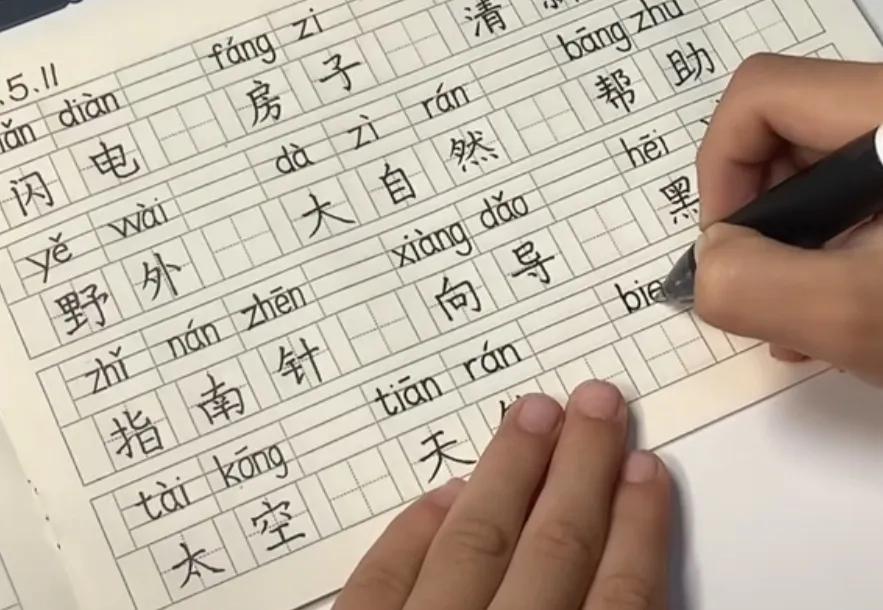 .5.11
ǎn diàn fáng zi
闪 电 房 子 清
yě wài dà zì rán bāng zhù
野 外 大 自 然 帮 助
zhǐ nán zhēn xiàng dǎo hēi
指 南 针 向 导 黑
tài kōng tiān rán bie
太 空 天